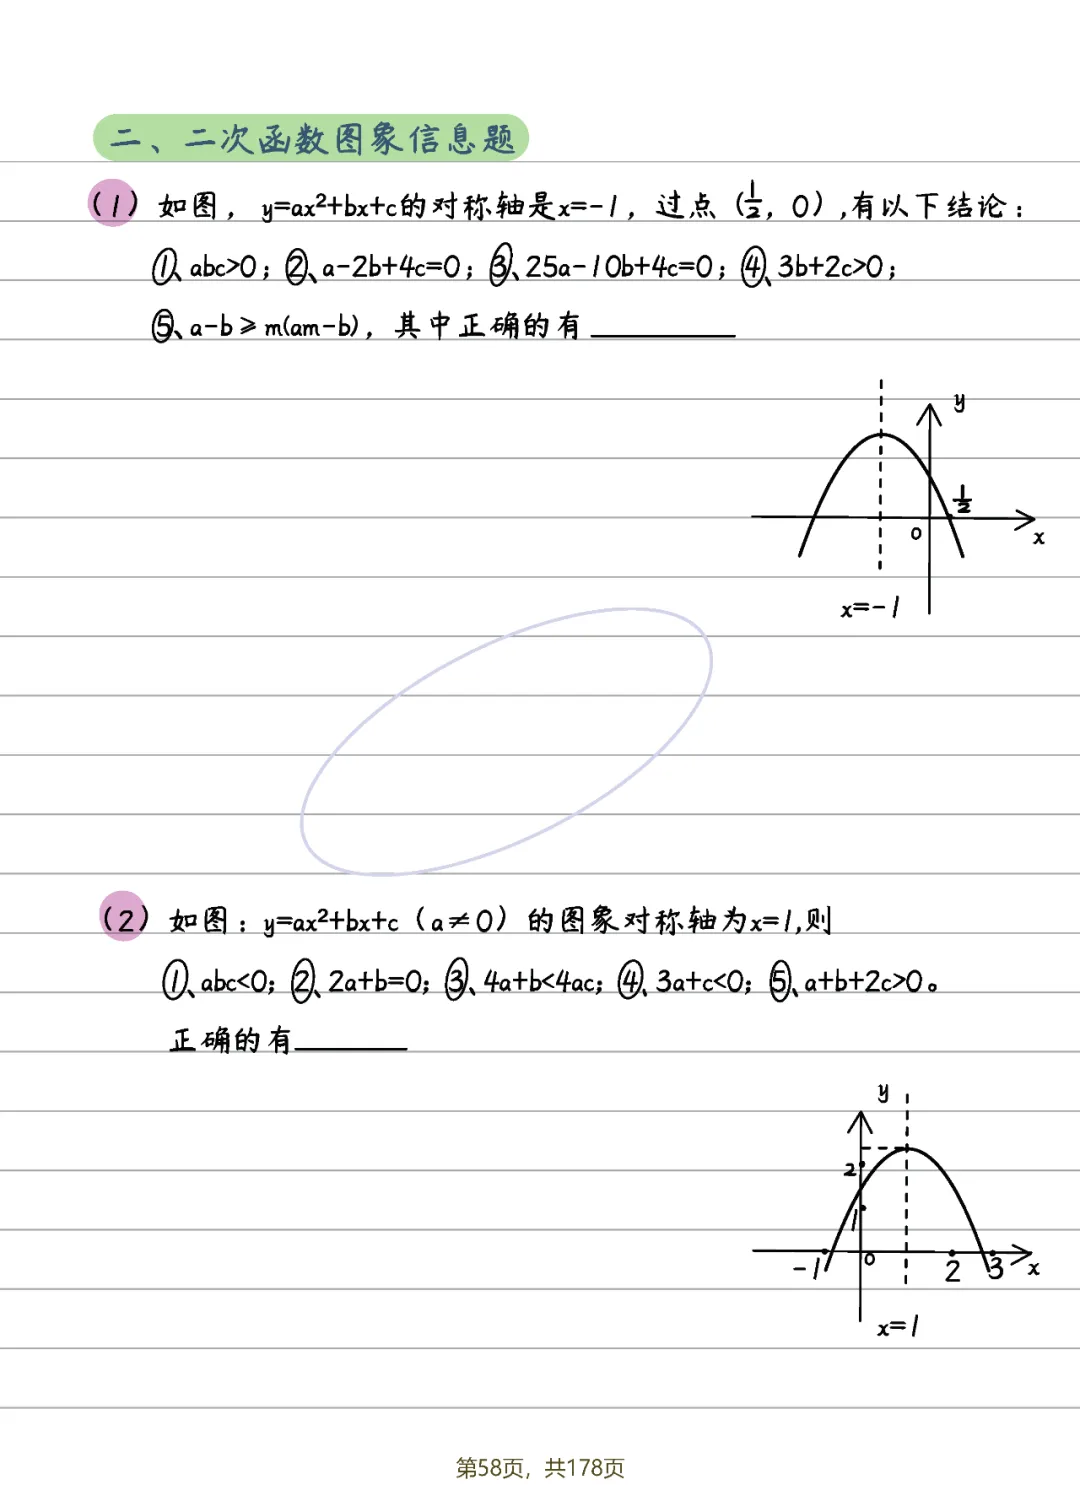 二、二次函数图象信息题
(1) 如图，y=ax²+bx+c的对称轴是x=-1，过点（1/2，0）,有以下结论：
①、abc>0；②、a-2b+4c=0；③、25a-10b+4c=0；④、3b+2c>0；
⑤、a-b≥m(am-b)，其中正确的有
y
1/2
0
x
x=-1
(2) 如图：y=ax²+bx+c（a≠0）的图象对称轴为x=1,则
①、abc<0；②、2a+b=0；③、4a+b<4ac；④、3a+c<0；⑤、a+b+2c>0。
正确的有
y
2
1
-1
0
2
3
x
x=1
第58页，共178页